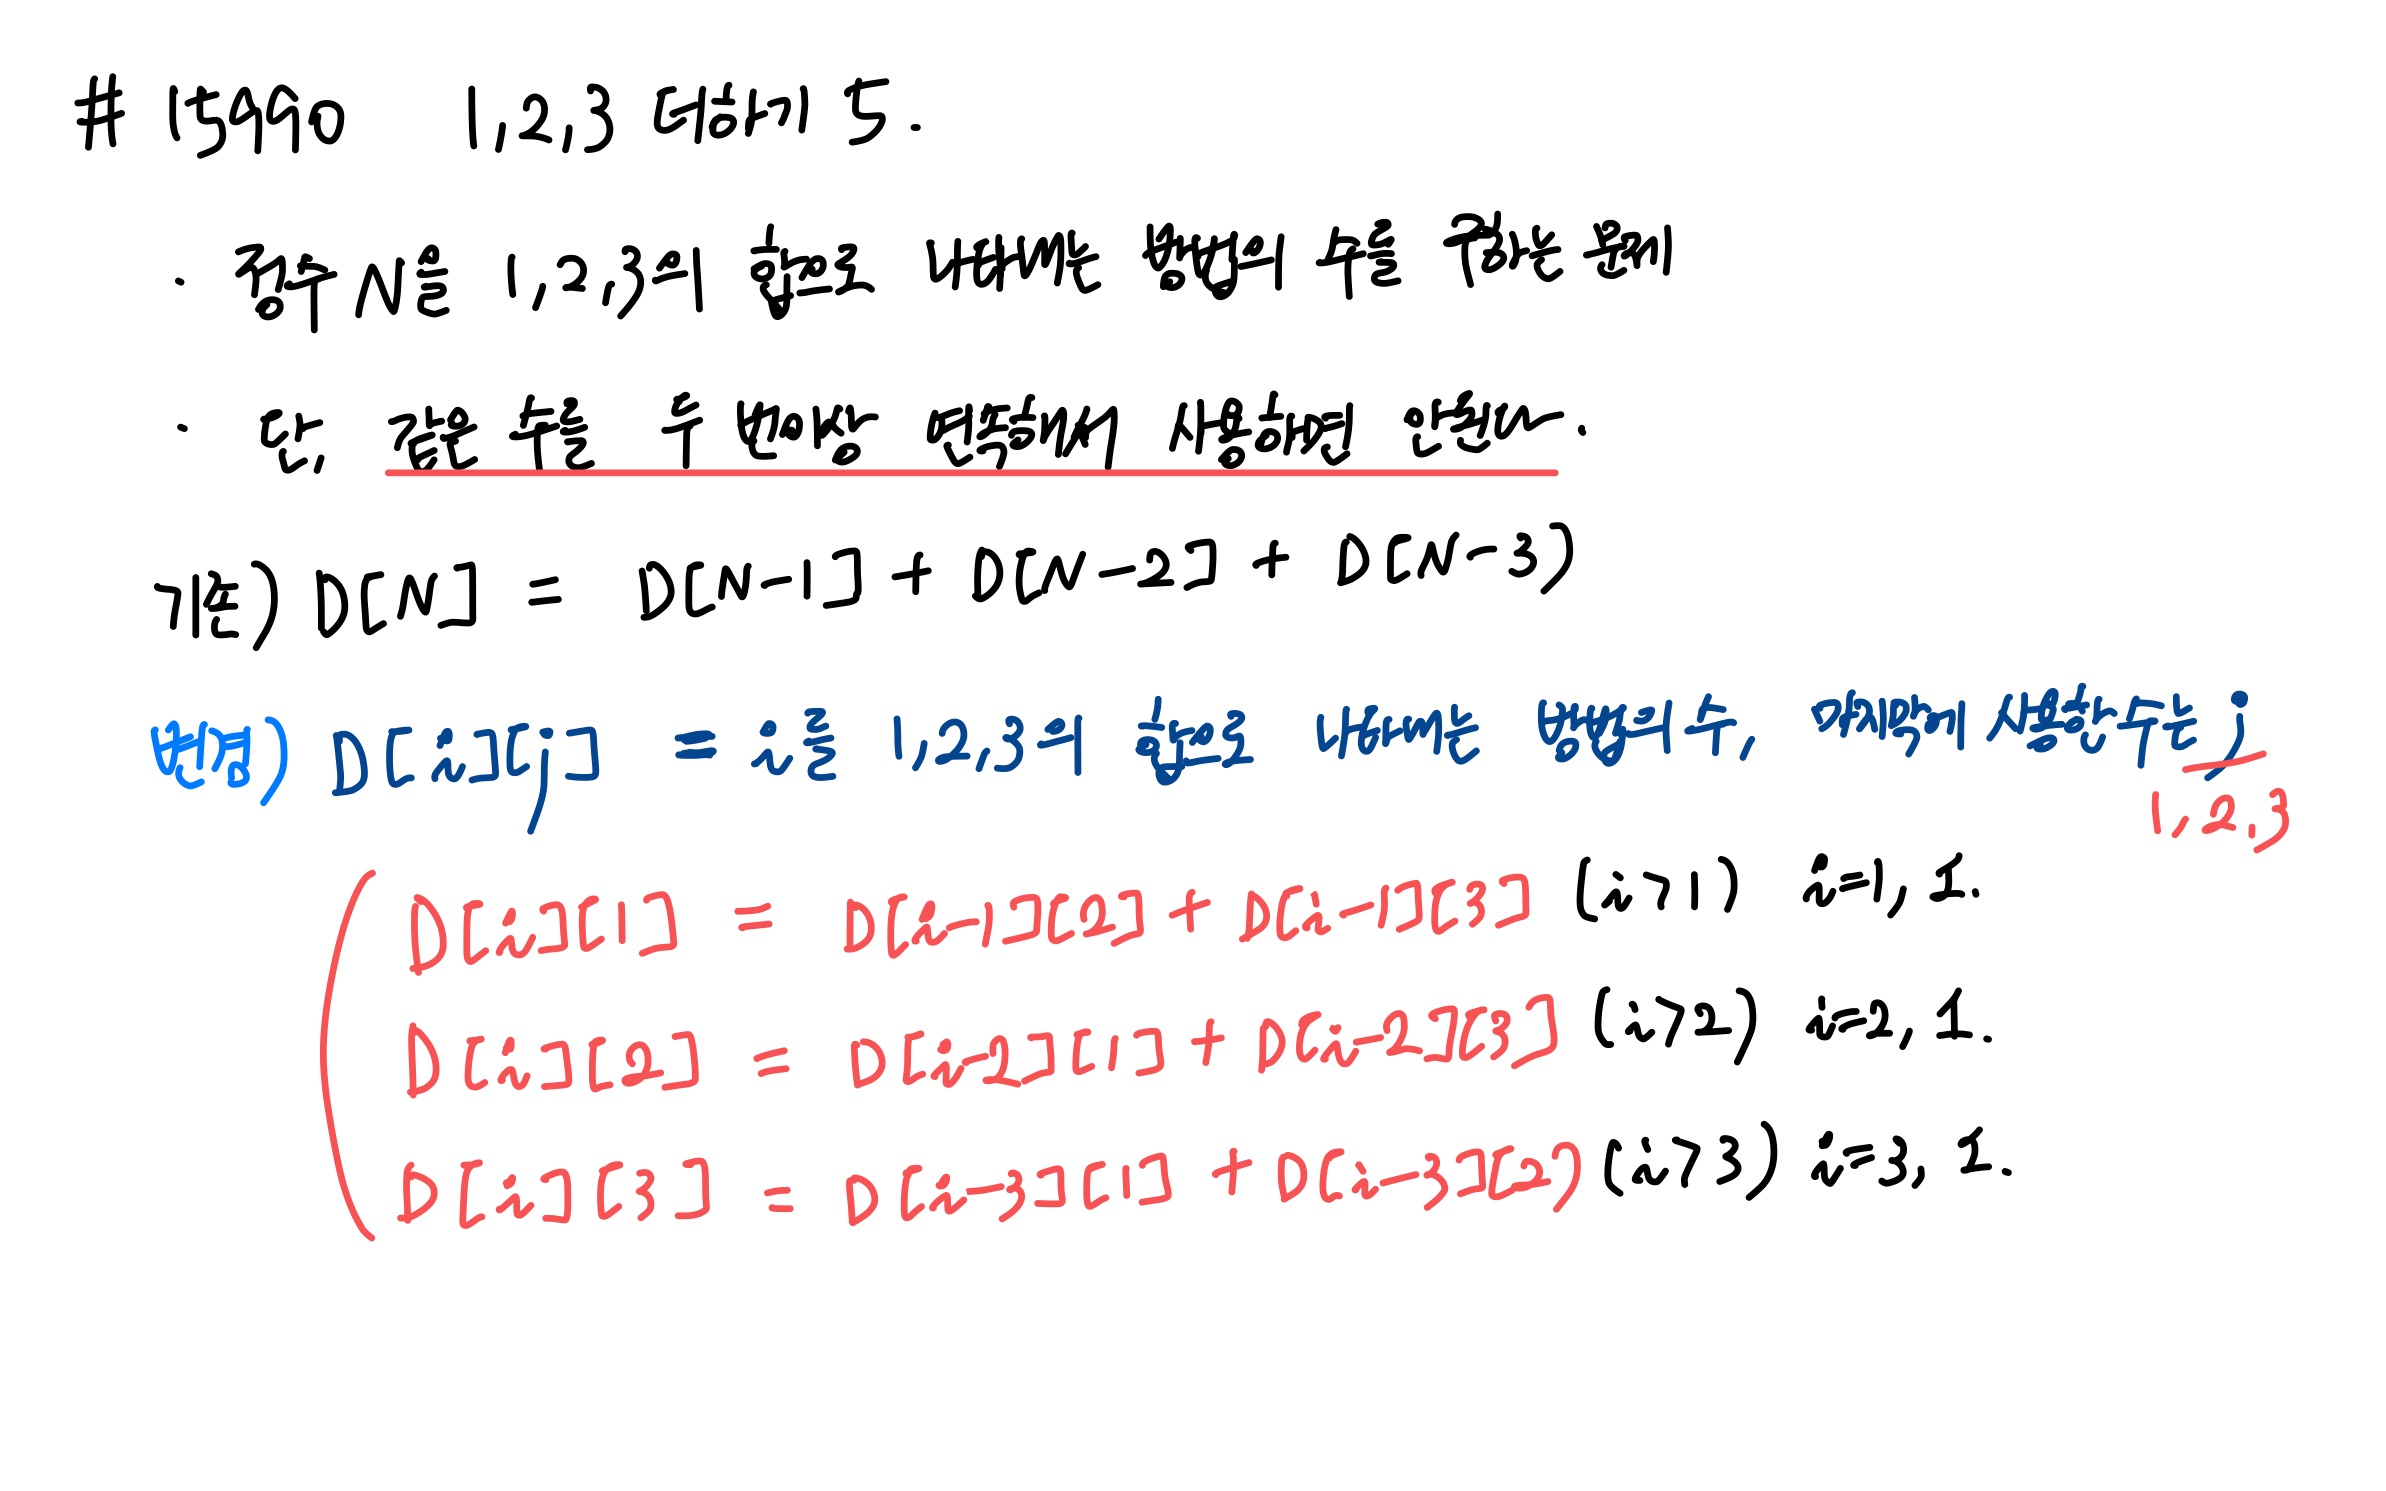 # 15990 1,2,3 더하기 5.
· 정수 N을 1,2,3의 합으로 나타내는 방법의 수를 구하는 문제
· 단, 같은 수를 두 번이상 연속해서 사용하면 안된다.
기존) D[N] = D[N-1] + D[N-2] + D[N-3]
변형) D[i][j] = i를 1,2,3의 합으로 나타내는 방법의 수, 마지막에 사용한 수는 j
1, 2, 3
D[i][1] = D[i-1][2] + D[i-1][3] (i>1) i=1, 1.
D[i][2] = D[i-2][1] + D[i-2][3] (i>2) i=2, 1.
D[i][3] = D[i-3][1] + D[i-3][2] (i>3) i=3, 1.